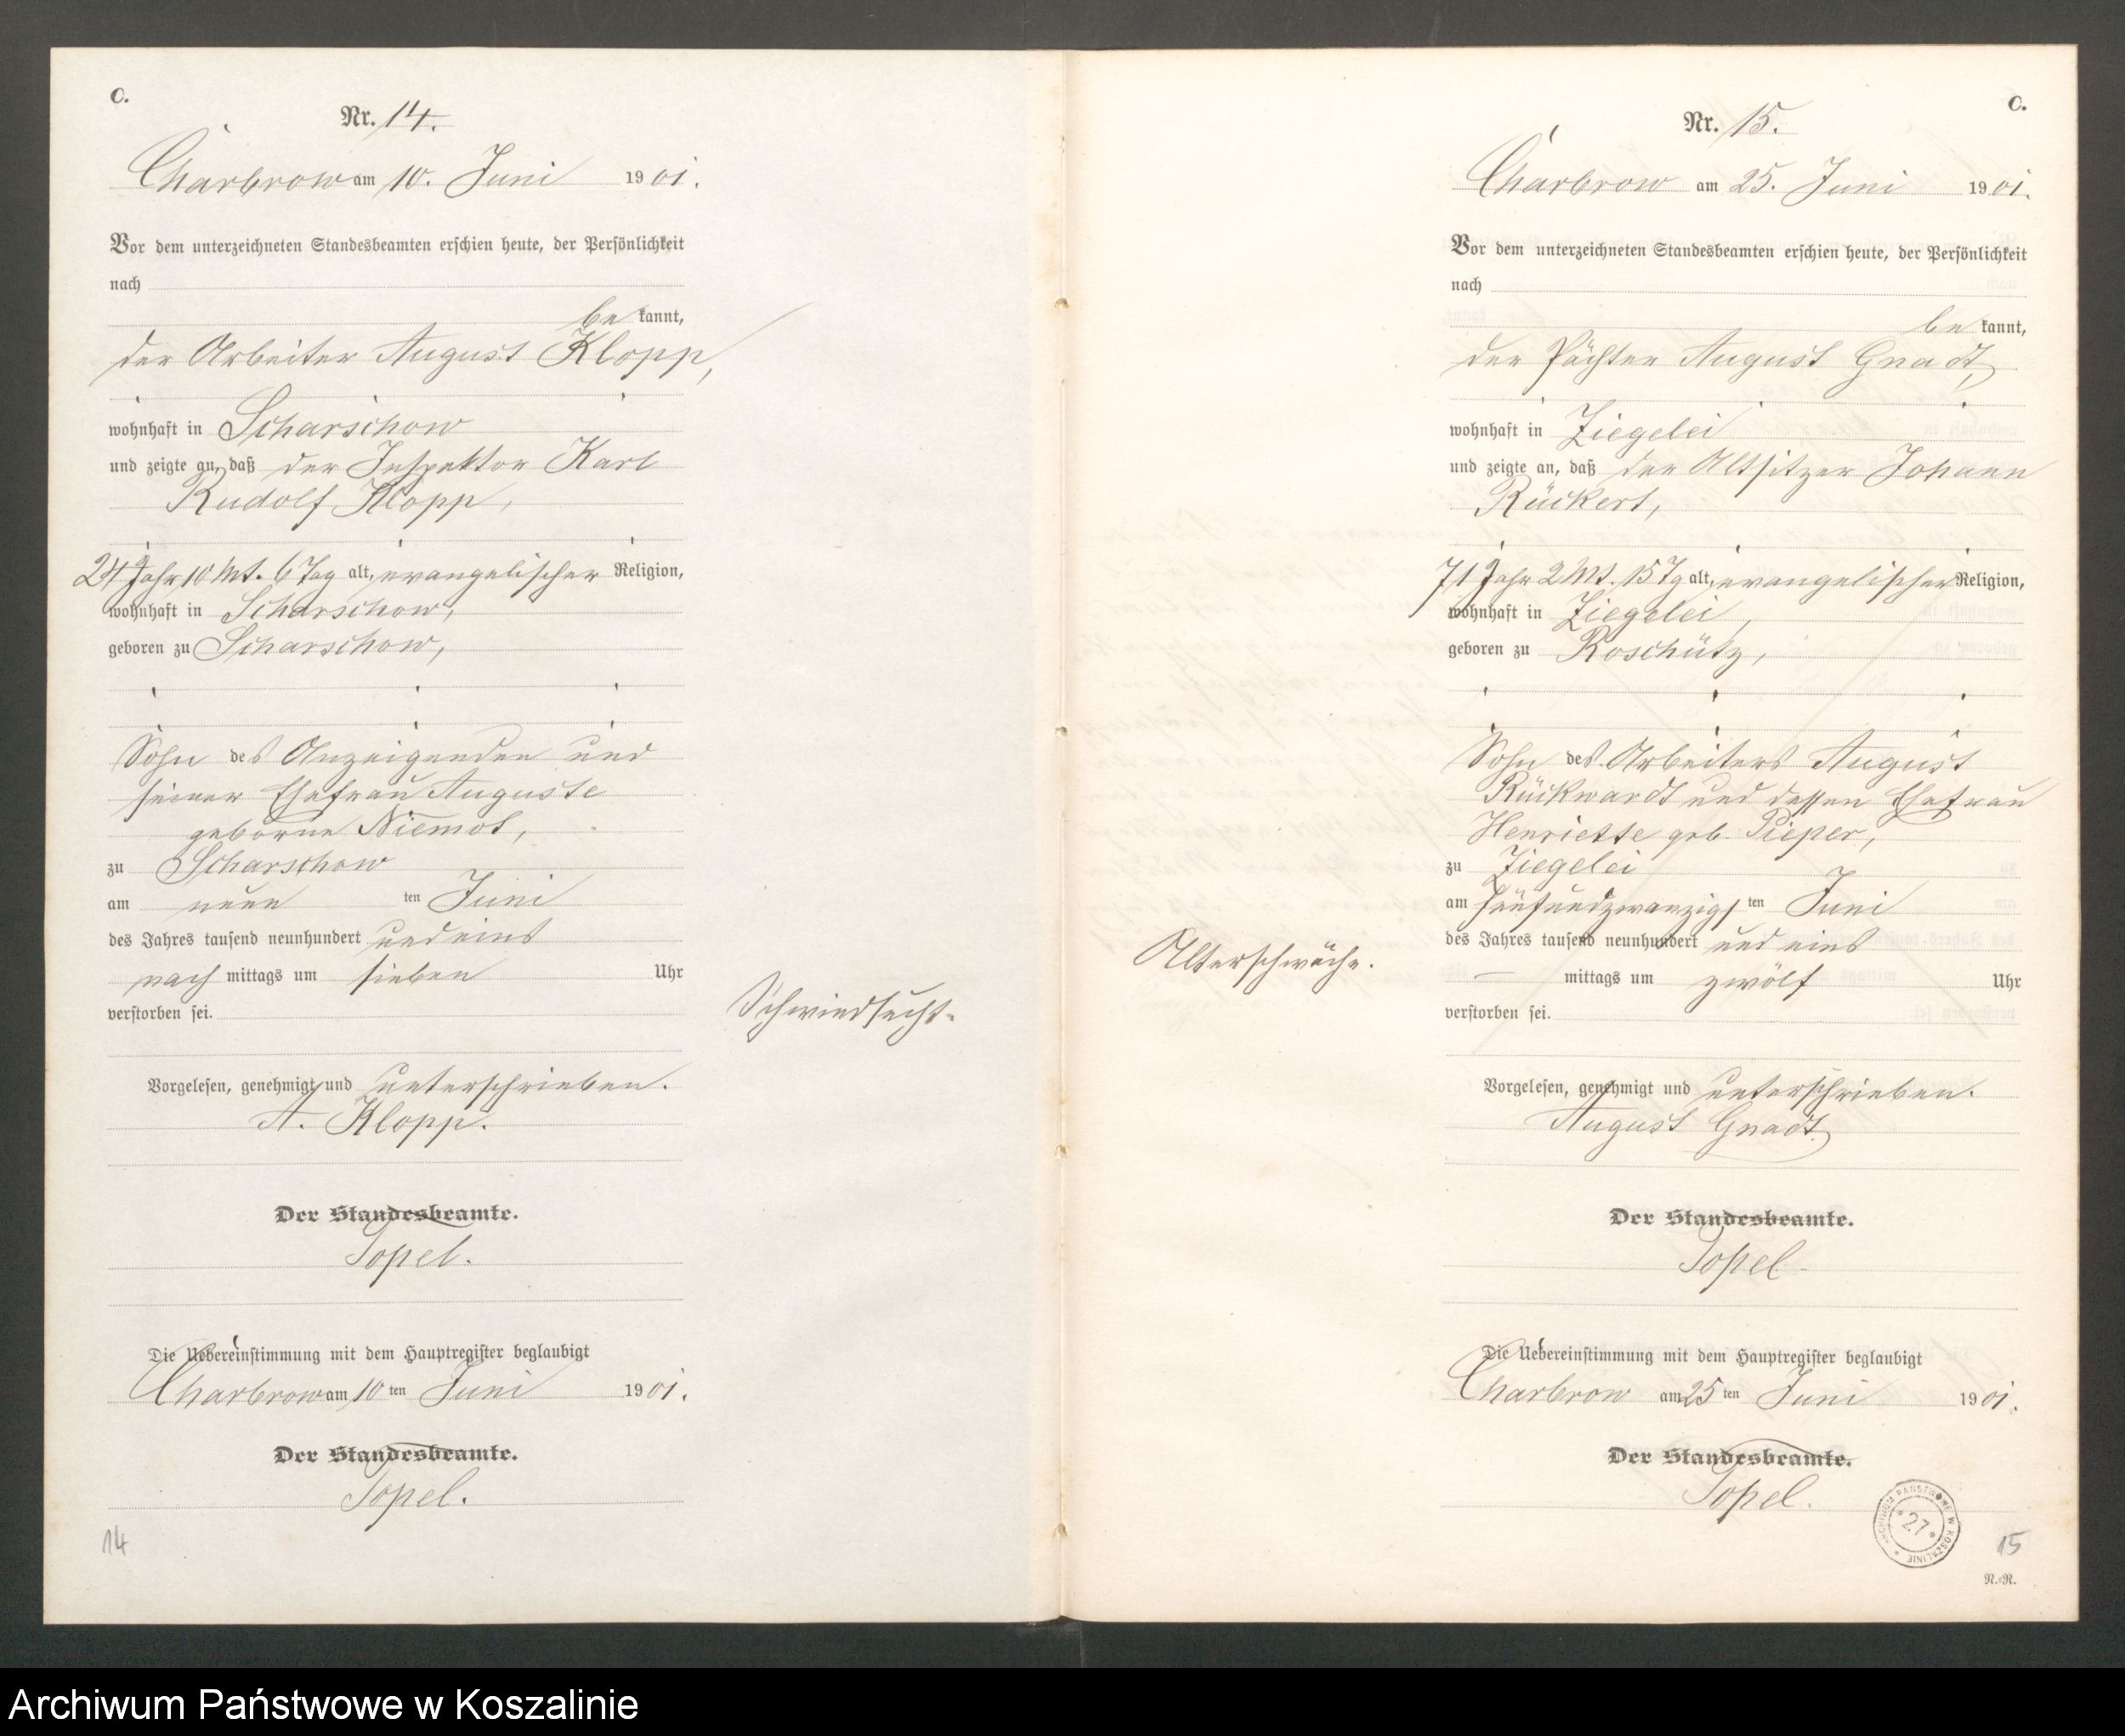 C.
Nr. 14.
Charbrow am 10. Juni 1901.
Vor dem unterzeichneten Standesbeamten erschien heute, der Persönlichkeit
nach
be kannt,
der Arbeiter August Klopp,
wohnhaft in Scharschow
und zeigte an, daß der Inspektor Karl
Rudolf Klopp,
24 Jahr 10 Mt. 6 Tag alt, evangelischer Religion,
wohnhaft in Scharschow,
geboren zu Scharschow,
Sohn des Anzeigenden und
seiner Ehefrau Auguste
geborne Niemot,
zu Scharschow
am neun ten Juni
des Jahres tausend neunhundert und eins
nach mittags um sieben Uhr
verstorben sei.
Schwindsucht.
Vorgelesen, genehmigt und unterschrieben.
A. Klopp.
Der Standesbeamte.
Topel.
Die Uebereinstimmung mit dem Hauptregister beglaubigt
Charbrow am 10 ten Juni 1901.
Der Standesbeamte.
Topel.
14
C.
Nr. 15.
Charbrow am 25. Juni 1901.
Vor dem unterzeichneten Standesbeamten erschien heute, der Persönlichkeit
nach
be kannt,
der Pächter August Gnadt,
wohnhaft in Ziegelei
und zeigte an, daß der Altsitzer Johann
Rückert,
71 Jahr 2 Mt. 15 Tg alt, evangelischer Religion,
wohnhaft in Ziegelei,
geboren zu Roschütz,
Sohn des Arbeiters August
Rückwardt und dessen Ehefrau
Henriette geb. Pieper,
zu Ziegelei
am fünfundzwanzigs ten Juni
des Jahres tausend neunhundert und eins
Alterschwäche.
— mittags um zwölf Uhr
verstorben sei.
Vorgelesen, genehmigt und unterschrieben.
August Gnadt.
Der Standesbeamte.
Topel.
Die Uebereinstimmung mit dem Hauptregister beglaubigt
Charbrow am 25 ten Juni 1901.
Der Standesbeamte.
Topel.
ARCHIWUM PAŃSTWOWE W KOSZALINIE
* 27 *
15
N.=R.
Archiwum Państwowe w Koszalinie